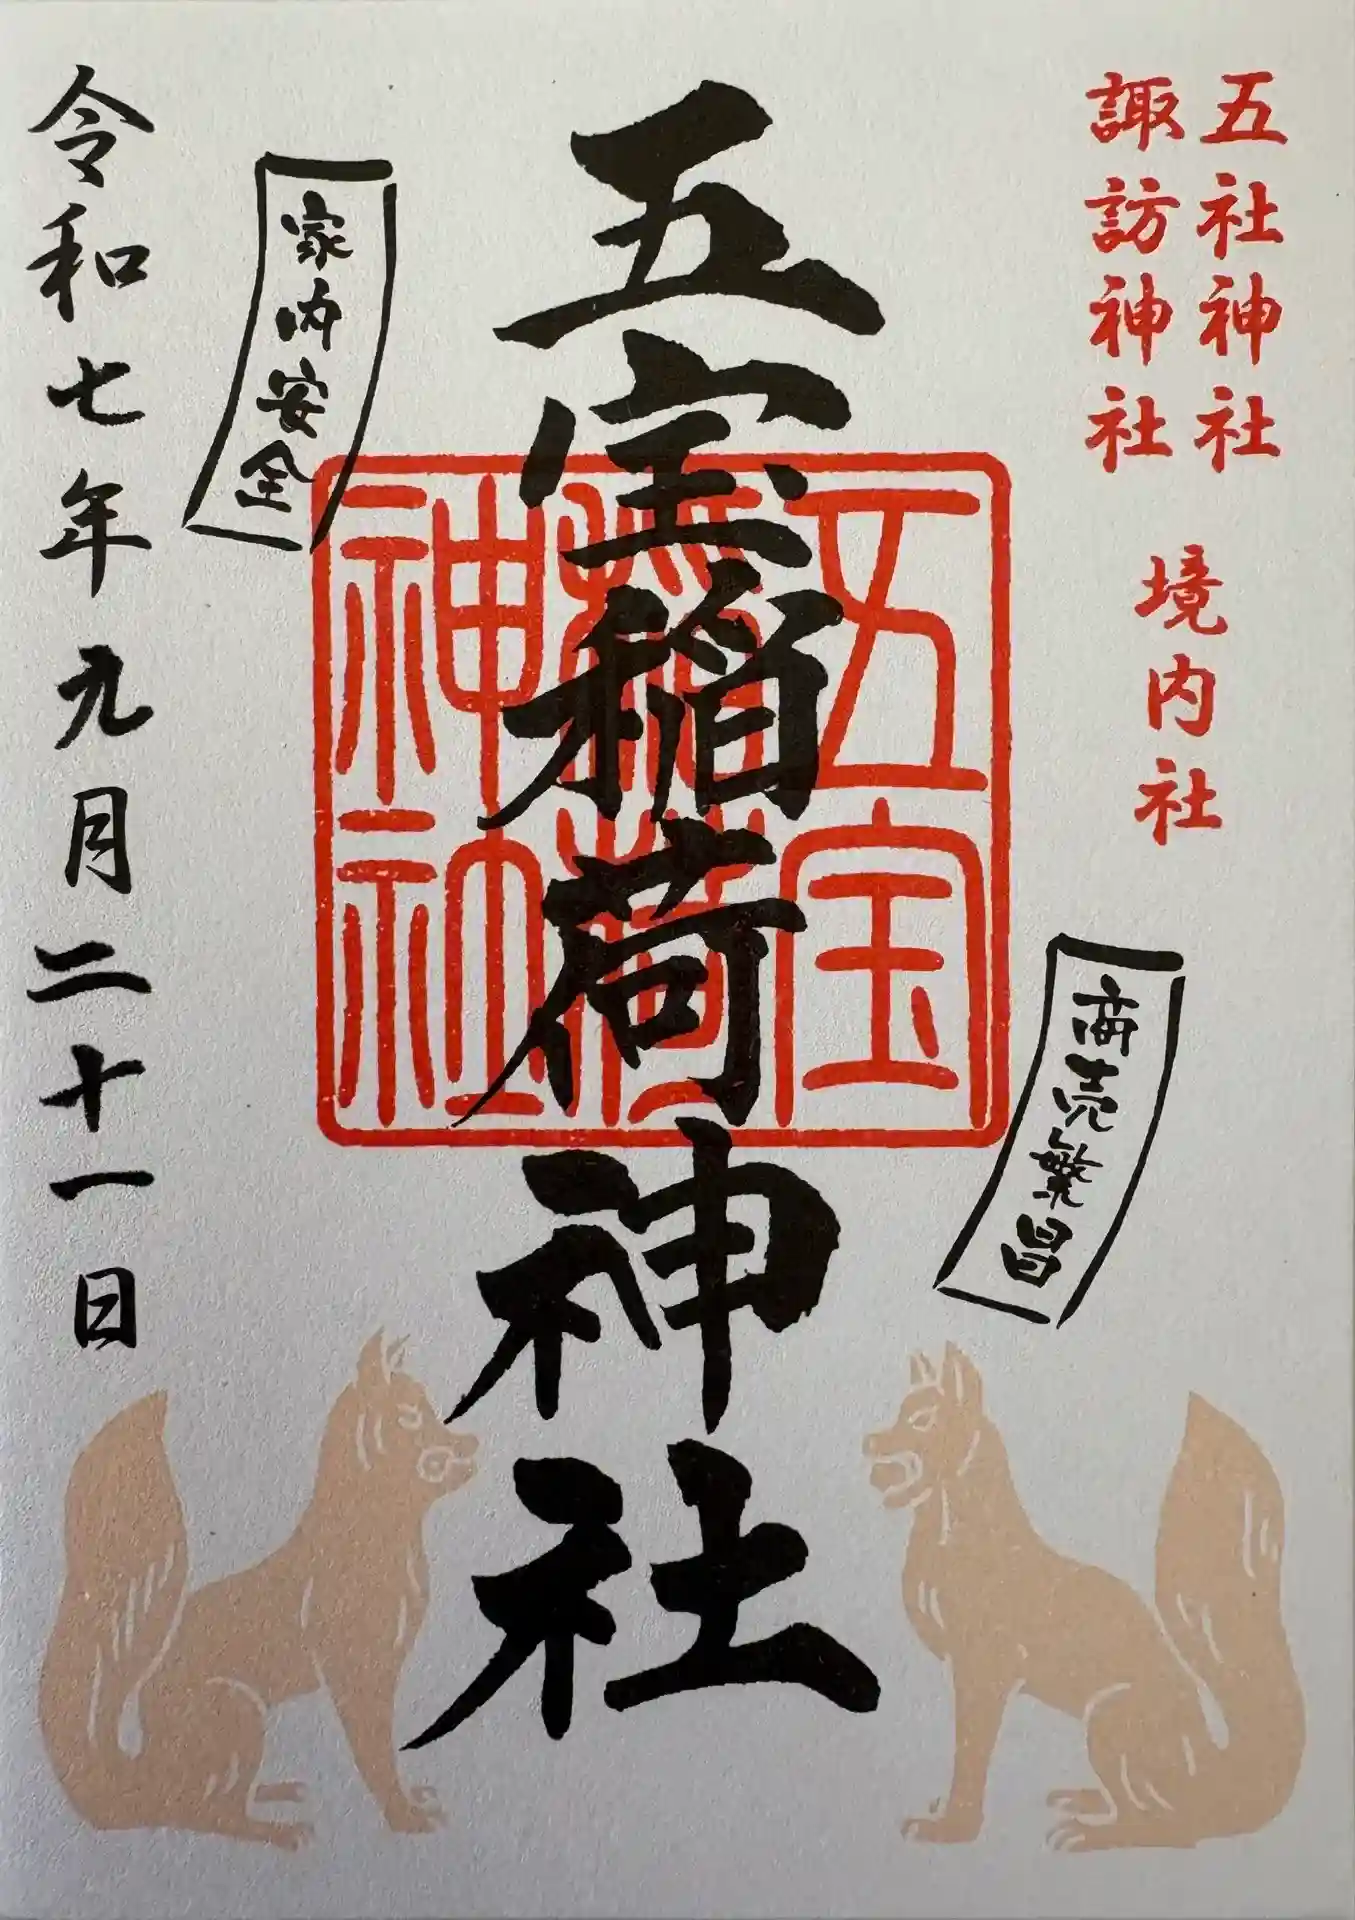 五社神社
諏訪神社
境内社
商売繁昌
五宝稲荷神社
五宝
稲荷
神社
家内安全
令和七年九月二十一日